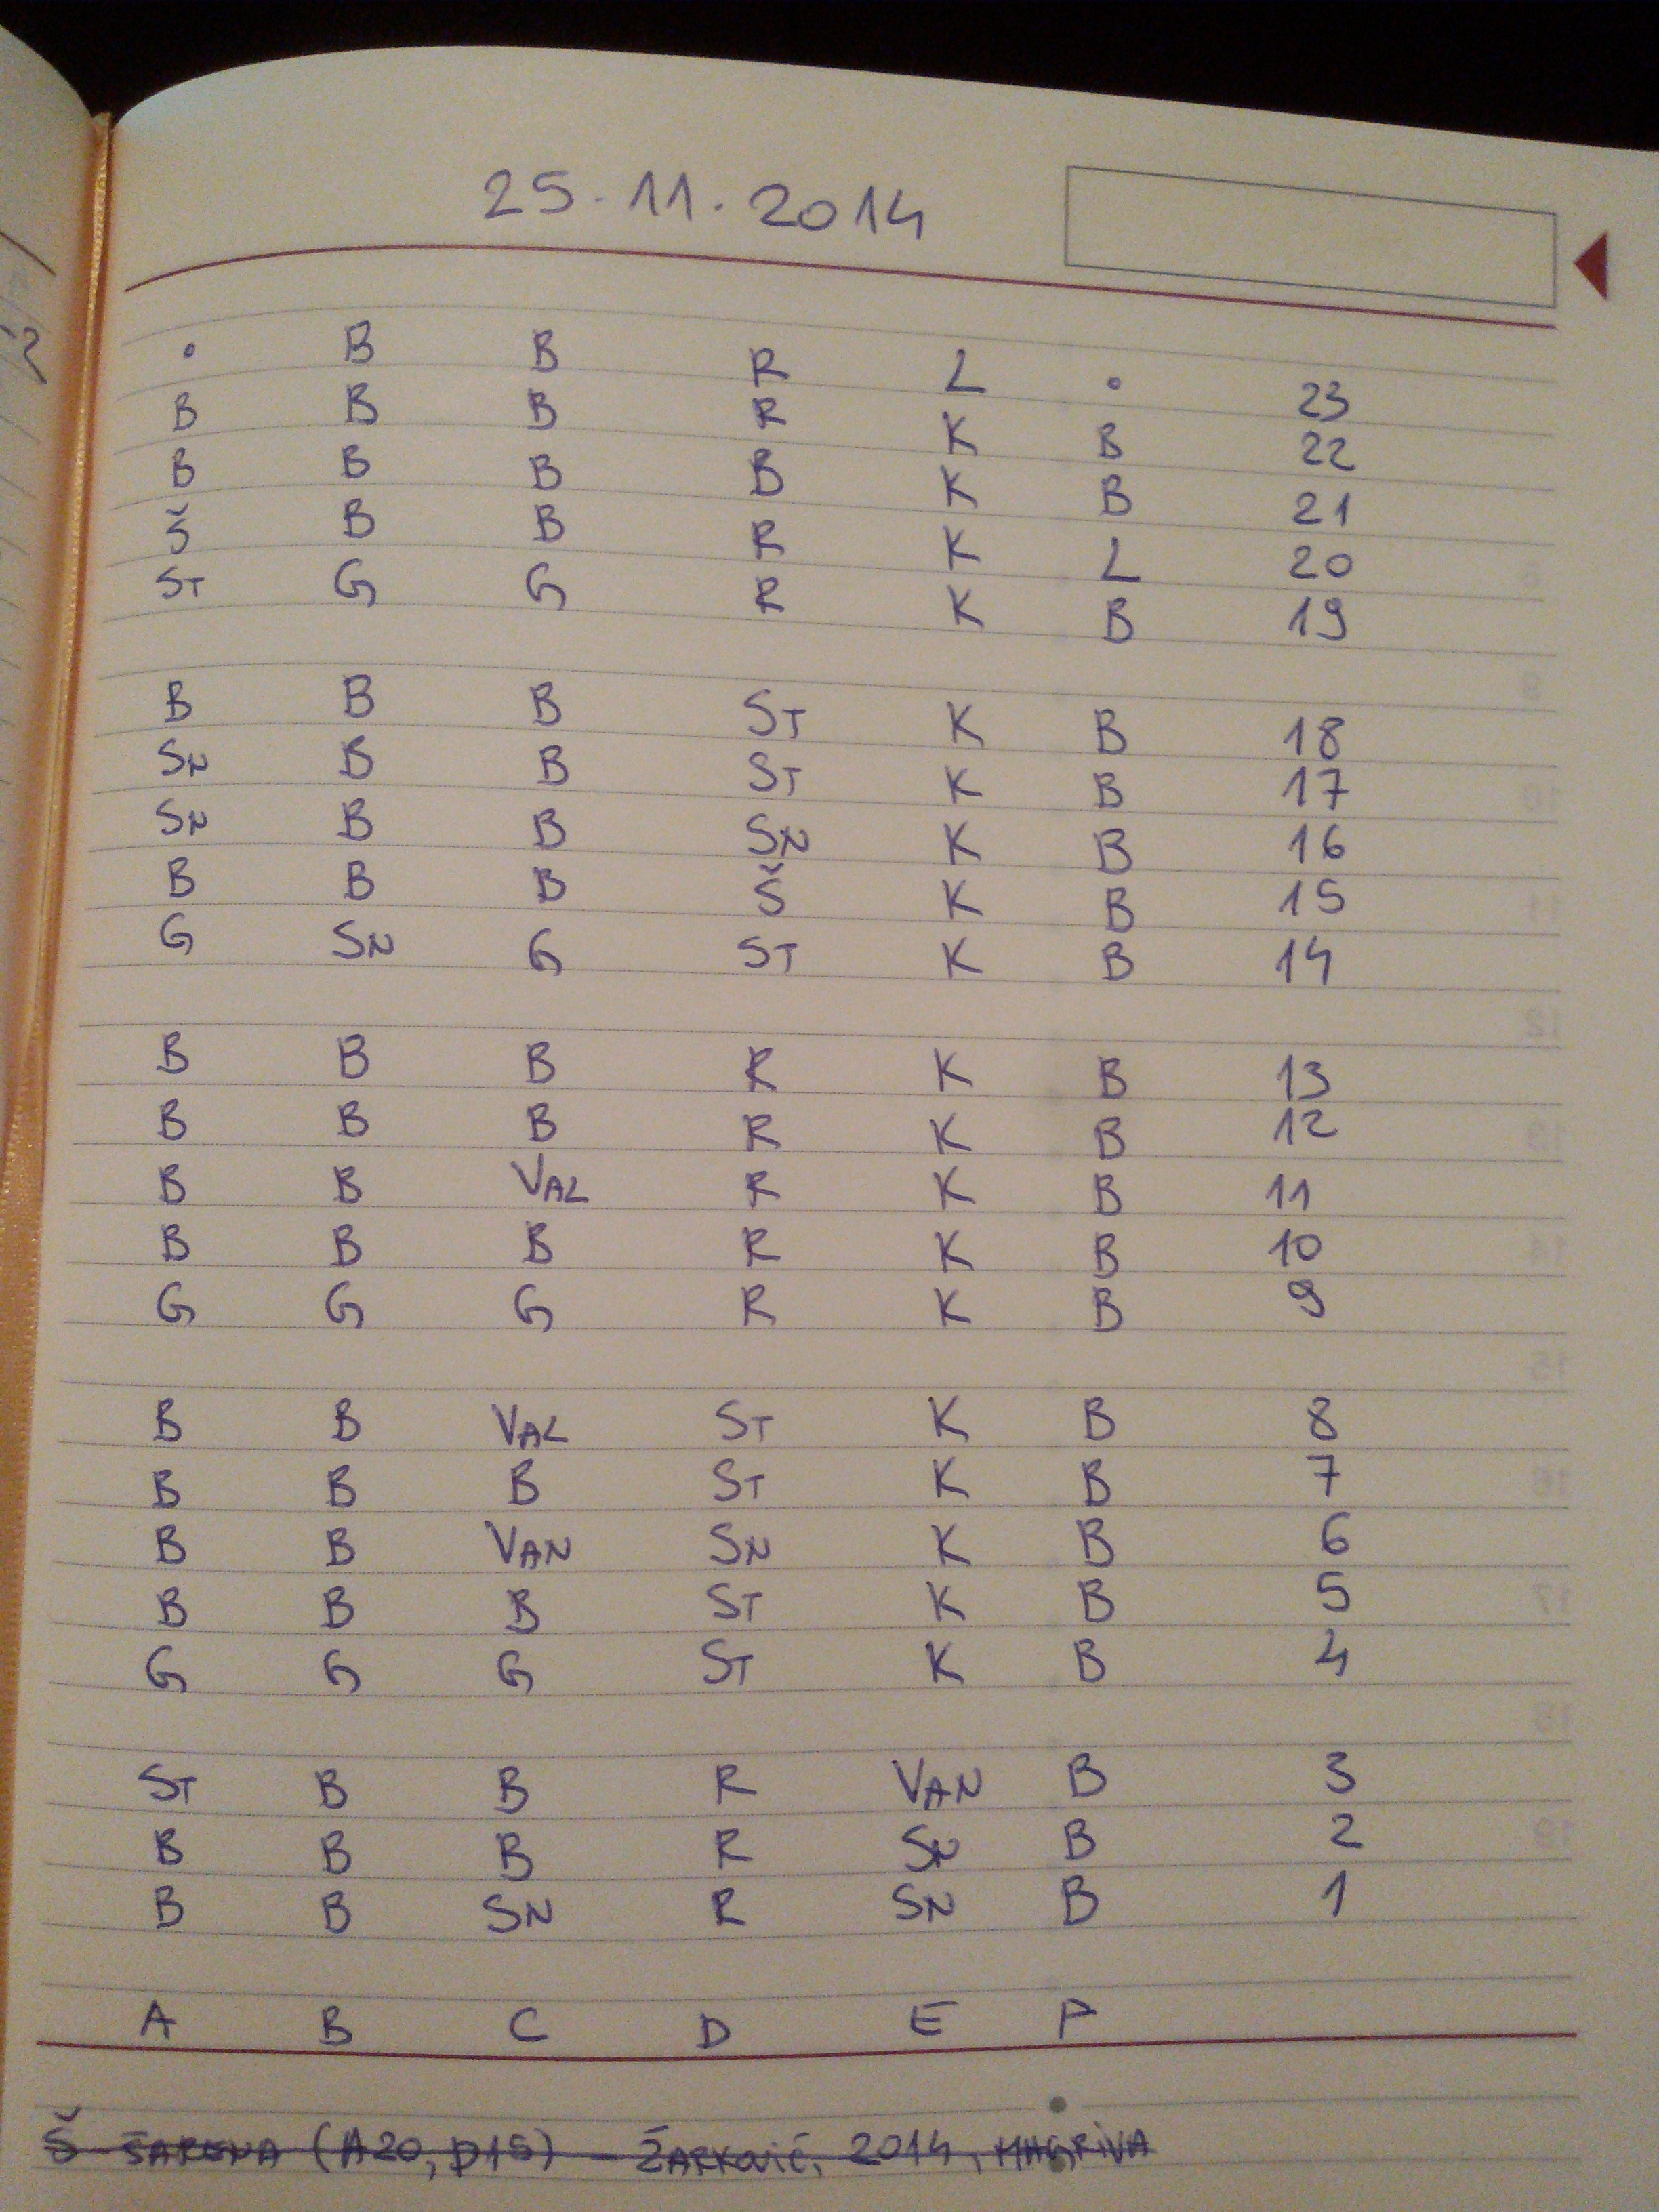 25.11.2014
• B B R L • 23
B B B R K B 22
B B B B K B 21
Š B B R K L 20
ST G G R K B 19
B B B ST K B 18
SN B B ST K B 17
SN B B SN K B 16
B B B Š K B 15
G SN G ST K B 14
B B B R K B 13
B B B R K B 12
B B VAL R K B 11
B B B R K B 10
G G G R K B 9
B B VAL ST K B 8
B B B ST K B 7
B B VAN SN K B 6
B B B ST K B 5
G G G ST K B 4
ST B B R VAN B 3
B B B R SN B 2
B B SN R SN B 1
A B C D E P
Š ŠARENA (A20, D15) - ŽARKOVIĆ, 2014, MAGRIVA